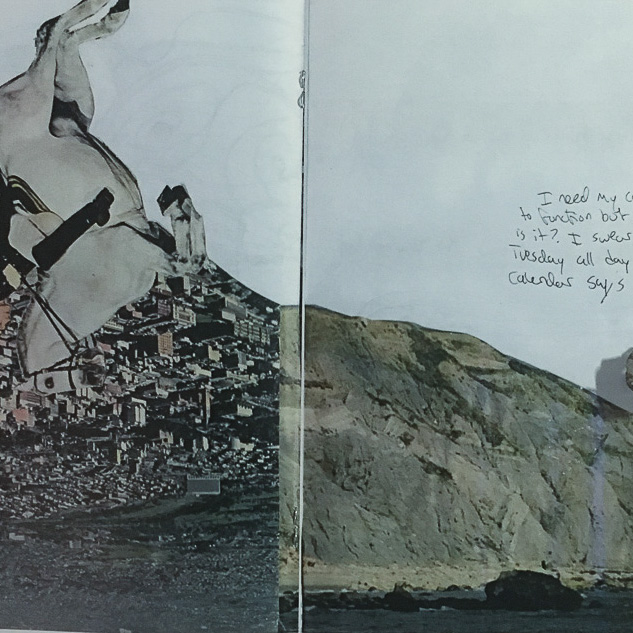 I need my
to function but
is it? I swear
Tuesday all day
calendar says